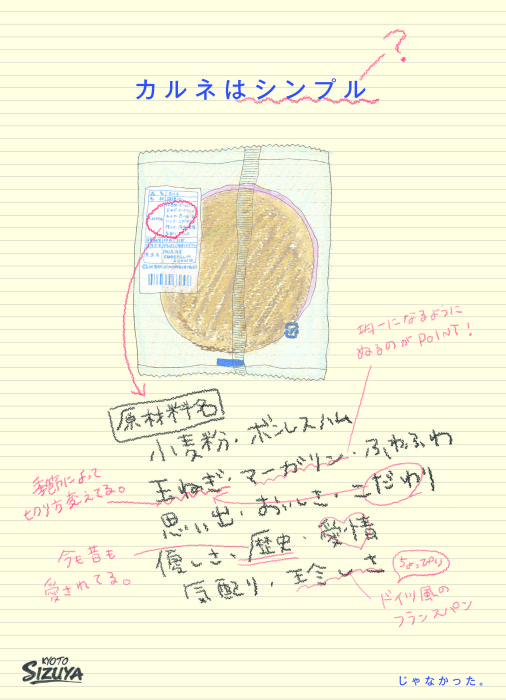 ?
カルネはシンプル
均一になるように
ぬるのがPOINT!
原材料名
小麦粉・ボンレスハム
玉ねぎ・マーガリン・ふわふわ
思い出・おいしさ・こだわり
優しさ・歴史・愛情
気配り・珍しさ
季節によって
切り方変えてる。
今も昔も
愛されてる。
ちょっぴり
ドイツ風の
フランスパン
KYOTO
SIZUYA
じゃなかった。